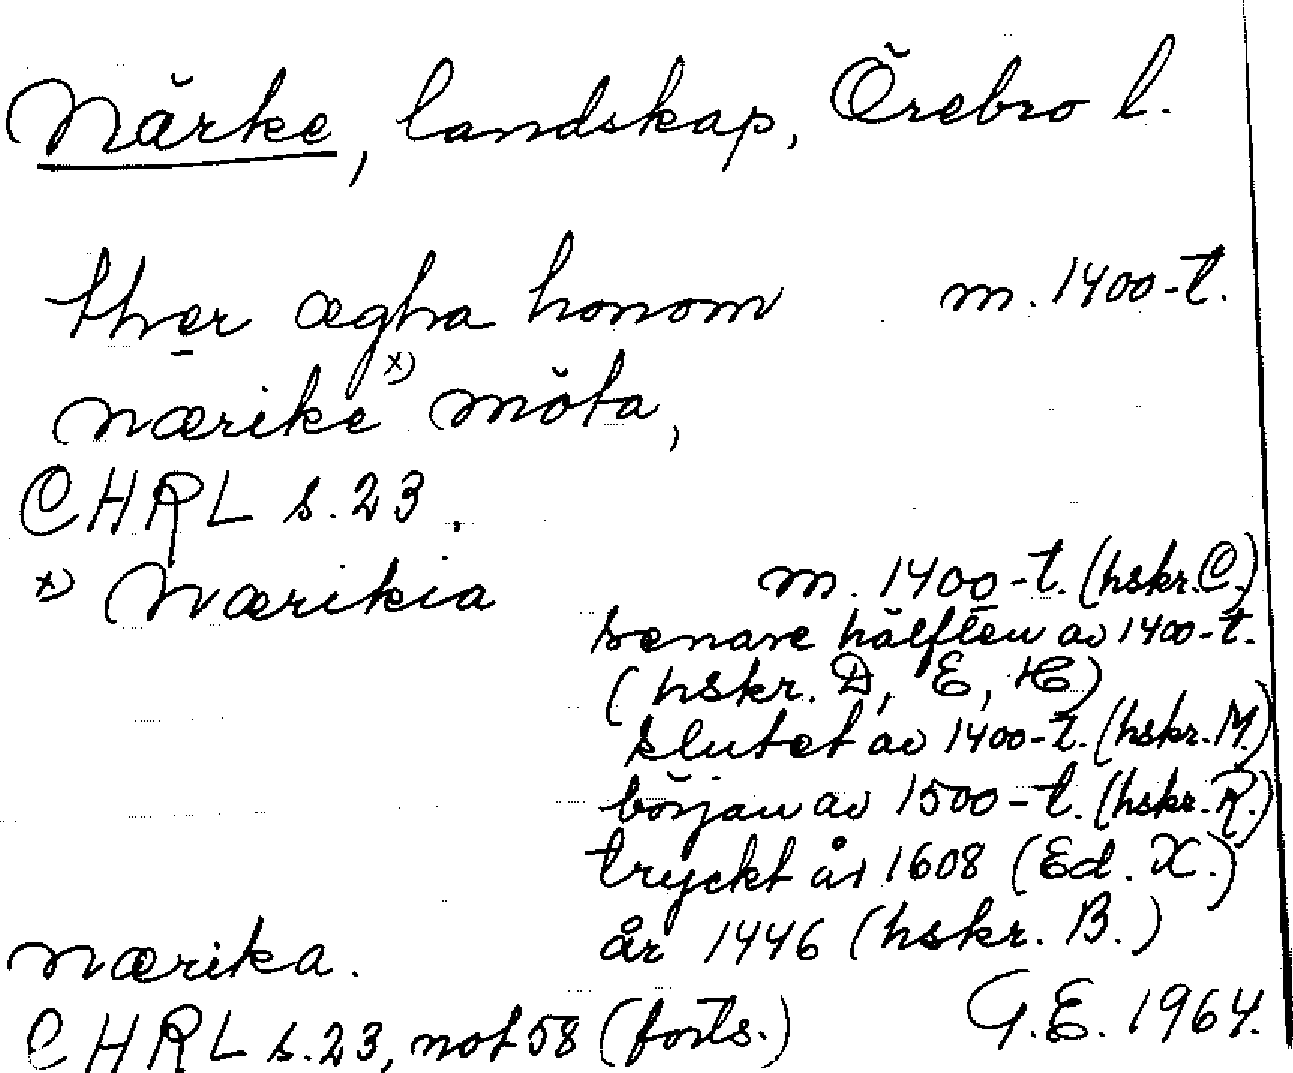 Närke, landskap, Örebro l.
ther ægha honom m. 1400-t.
nærike x) möta,
CHRL s. 23.
x) Nærikia m. 1400-t. (hskr. C.)
senare hälften av 1400-t.
(hskr. D, E, H)
slutet av 1400-t. (hskr. M.)
början av 1500-t. (hskr. R.)
tryckt år 1608 (Ed. X.)
nærika. år 1446 (hskr. B.)
CHRL s. 23, not 58 (forts.) G.E. 1964.